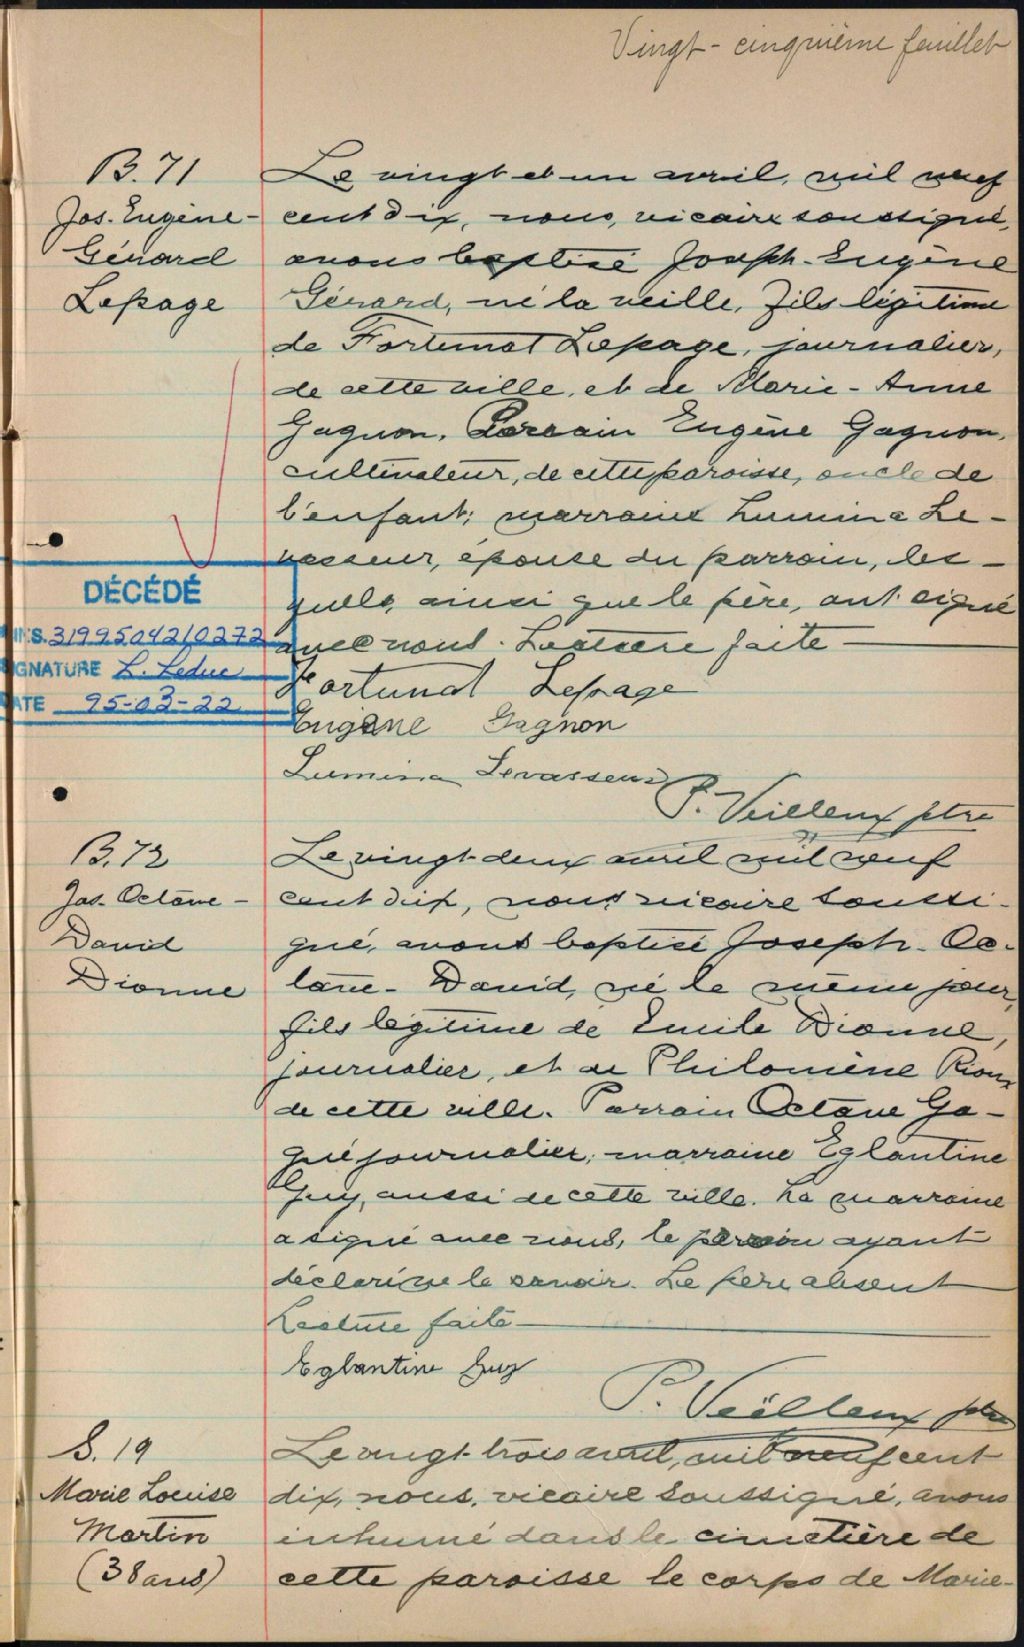 Vingt-cinquième feuillet
B. 71
Jos. Eugène-
Gérard
Lepage
Le vingt et un avril, mil neuf
cent dix, nous, vicaire soussigné,
avons baptisé Joseph-Eugène
Gérard, né la veille, fils légitime
de Fortunat Lepage, journalier,
de cette ville, et de Marie-Anne
Gagnon. Parrain Eugène Gagnon,
cultivateur, de cette paroisse, oncle de
l'enfant; marraine Lumina Le-
vasseur, épouse du parrain, les-
quels, ainsi que le père, ont signé
avec nous. Lecture faite
DÉCÉDÉ
INS. 3199504210272
SIGNATURE L. Leduc
DATE 95-03-22
Fortunat Lepage
Eugène Gagnon
Lumina Levasseur
P. Veilleux ptre
B. 72
Jos. Octave-
David
Dionne
Le vingt-deux avril mil neuf
cent dix, nous vicaire soussi-
gné, avons baptisé Joseph-Oc-
tave-David, né le même jour,
fils légitime de Emile Dionne,
journalier, et de Philomène Rioux
de cette ville. Parrain Octave Ga-
gné journalier; marraine Eglantine
Guy, aussi de cette ville. La marraine
a signé avec nous, le parrain ayant
déclaré ne le savoir. Le père absent
Lecture faite
Eglantine Guy
P. Veilleux ptre
S. 19
Marie Louise
Martin
(38 ans)
Le vingt-trois avril, mil neuf cent
dix, nous, vicaire soussigné, avons
inhumé dans le cimetière de
cette paroisse le corps de Marie-